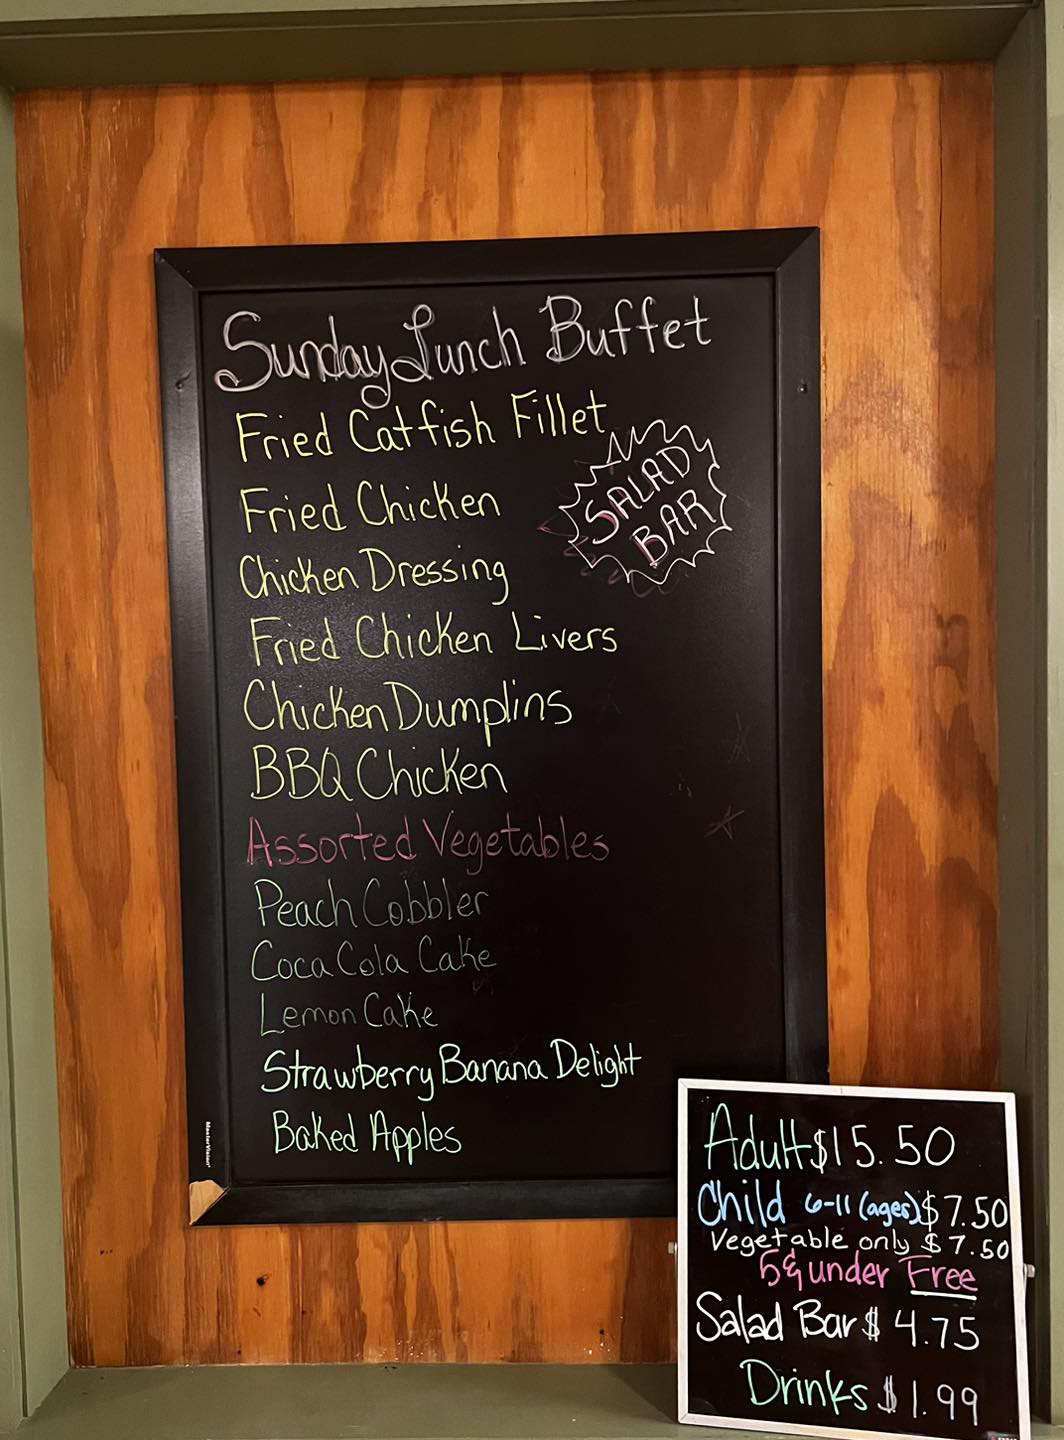 Sunday Lunch Buffet
Fried Catfish Fillet
SALAD
BAR
Fried Chicken
Chicken Dressing
Fried Chicken Livers
Chicken Dumplins
BBQ Chicken
Assorted Vegetables
Peach Cobbler
Coca Cola Cake
Lemon Cake
Strawberry Banana Delight
Baked Apples
MasterVision
Adult $15.50
Child 6-11 (ages) $7.50
Vegetable only $7.50
5 & under Free
Salad Bar $4.75
Drinks $1.99